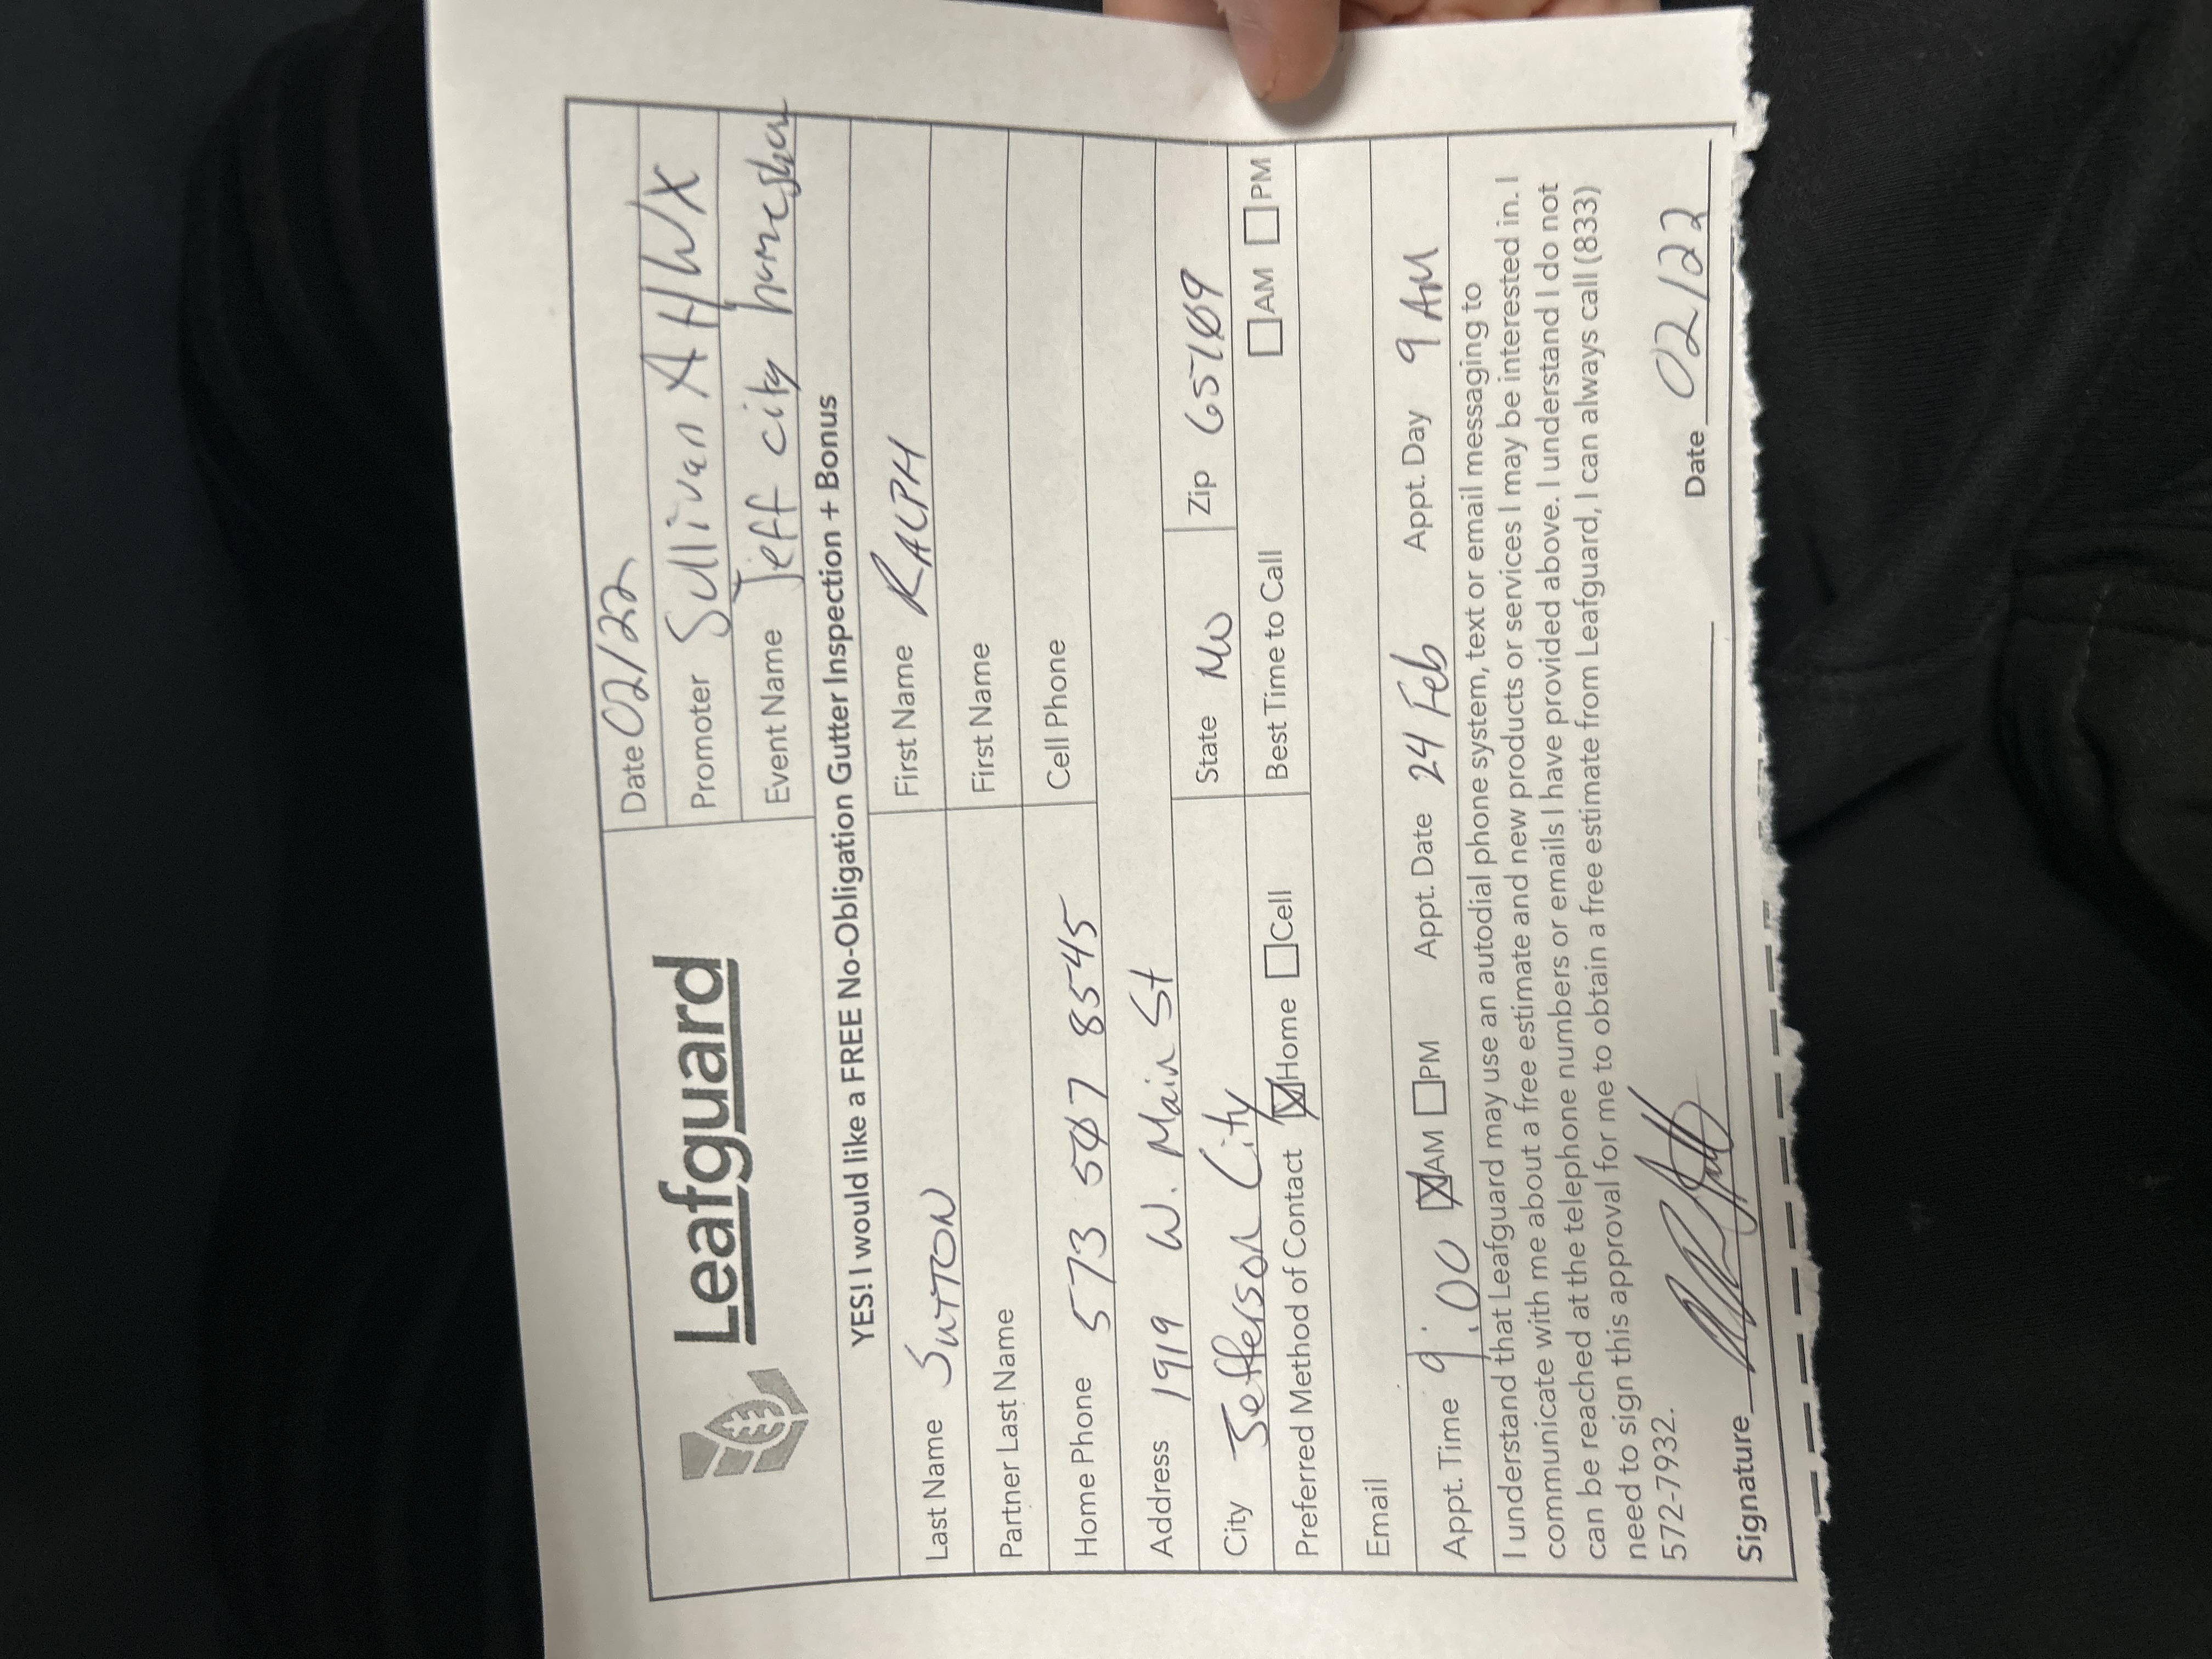 Leafguard
Date 02/22
Promoter Sullivan AHWX
Event Name Jeff city homeshow
YES! I would like a FREE No-Obligation Gutter Inspection + Bonus
Last Name SUTTON First Name RALPH
Partner Last Name First Name
Home Phone 573 507 8545 Cell Phone
Address 1919 W. Main St
City Jefferson City State MO Zip 65109
Preferred Method of Contact ☒Home ☐Cell Best Time to Call ☐AM ☐PM
Email
Appt. Time 9:00 ☒AM ☐PM Appt. Date 24 Feb Appt. Day 9 AM
I understand that Leafguard may use an autodial phone system, text or email messaging to
communicate with me about a free estimate and new products or services I may be interested in. I
can be reached at the telephone numbers or emails I have provided above. I understand I do not
need to sign this approval for me to obtain a free estimate from Leafguard, I can always call (833)
572-7932.
Signature Date 02/22